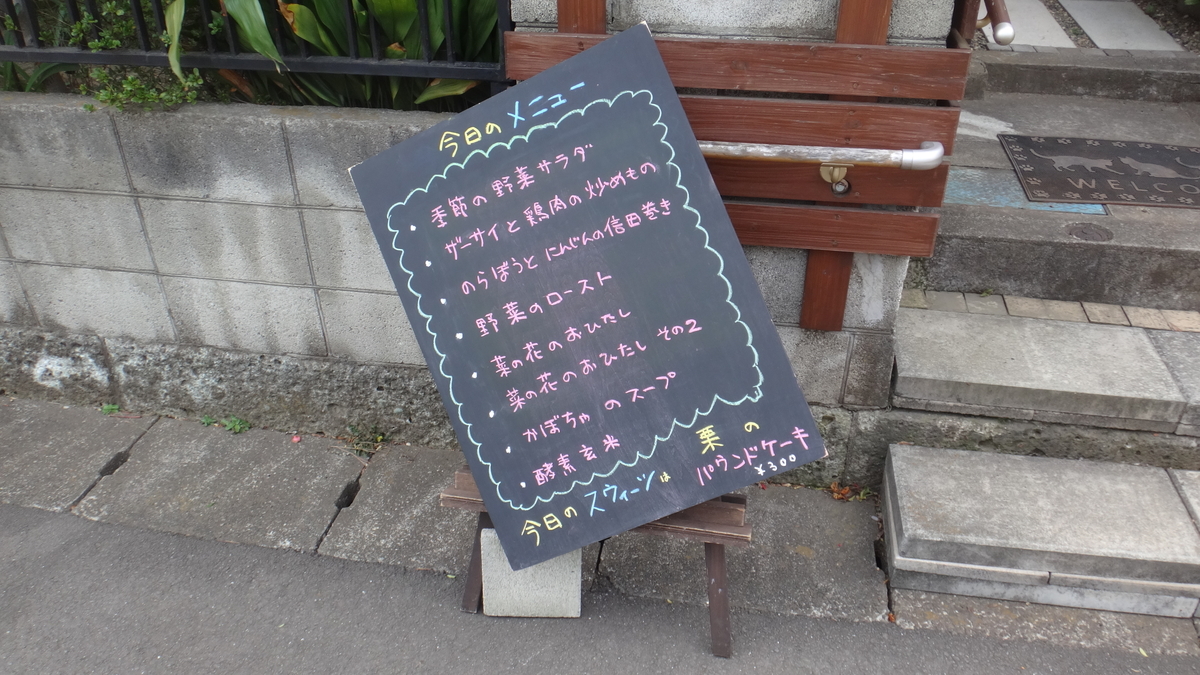 今日の メニュー
・季節の野菜サラダ
・ザーサイと鶏肉の炒めもの
・のらぼうとにんじんの信田巻き
・野菜のロースト
・菜の花のおひたし
・菜の花のおひたし その2
・かぼちゃ の スープ
・酵素玄米
今日の スウィーツは 栗 の
パウンドケーキ
¥300
WELCO